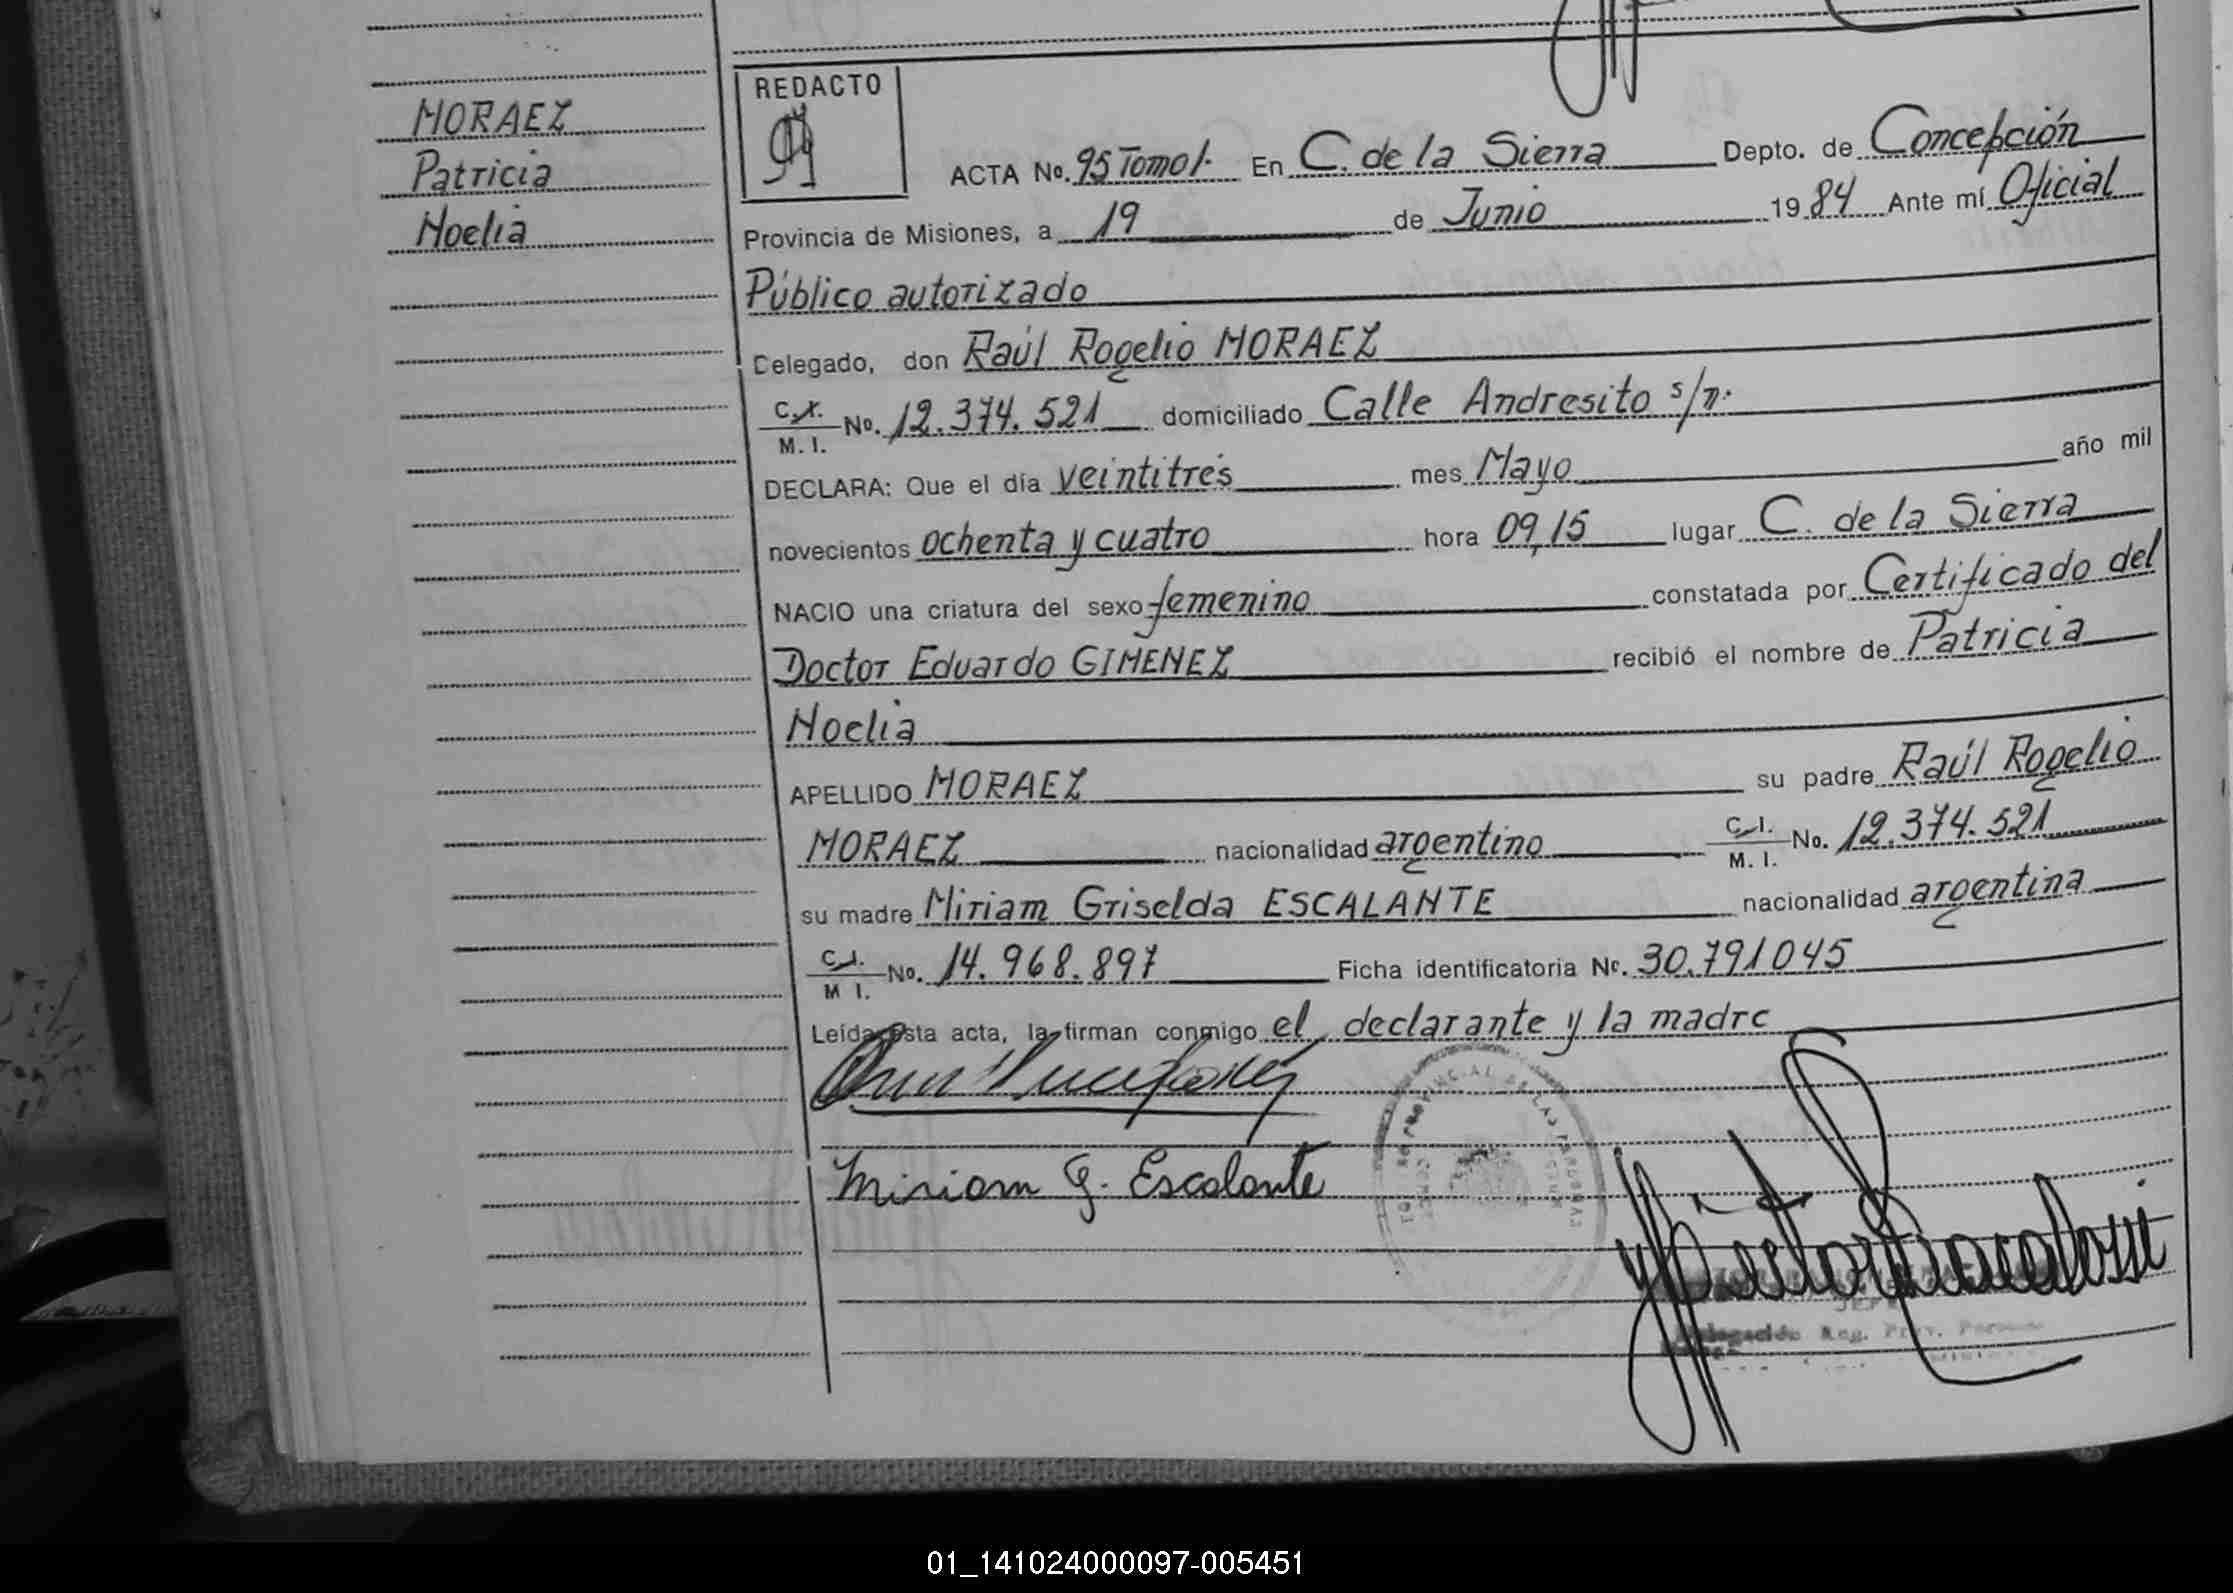 MORAEZ
Patricia
Noelia
REDACTO
ACTA No. 95 Tomo I. En C. de la Sierra Depto. de Concepción
Provincia de Misiones, a 19 de Junio 1984 Ante mí Oficial
Público autorizado
Celegado, don Raúl Rogelio MORAEZ
C.I. M. I. No. 12.374.521 domiciliado Calle Andresito s/n.
DECLARA: Que el día veintitrés mes Mayo año mil
novecientos ochenta y cuatro hora 09,15 lugar C. de la Sierra
NACIO una criatura del sexo femenino constatada por Certificado del
Doctor Eduardo GIMENEZ recibió el nombre de Patricia
Noelia
APELLIDO MORAEZ su padre Raúl Rogelio
MORAEZ nacionalidad argentino C.I. M. I. No. 12.374.521
su madre Miriam Griselda ESCALANTE nacionalidad argentina
C.I. M I. No. 14.968.897 Ficha identificatoria Nº. 30.791045
Leída esta acta, la firman conmigo el declarante y la madre
Miriam G. Escalante
JEFE
Delegación Reg. Prov. Personas
01_141024000097-005451